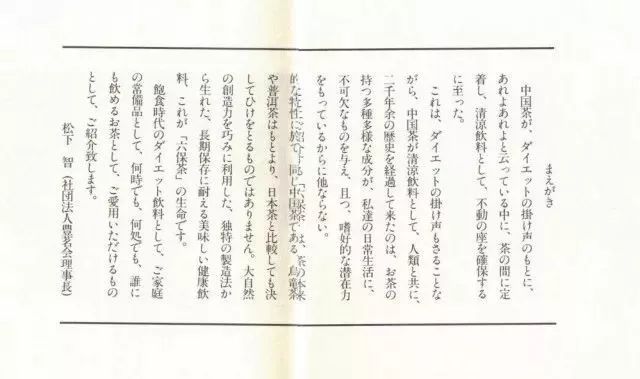 まえがき
中国茶が、ダイエットの掛け声のもとに、
あれよあれよと云っている中に、茶の間に定
着し、清涼飲料として、不動の座を確保する
に至った。
これは、ダイエットの掛け声もさることな
がら、中国茶が清涼飲料として、人類と共に、
二千年余の歴史を経過して来たのは、お茶の
持つ多種多様な成分が、私達の日常生活に、
不可欠なものを与え、且つ、嗜好的な潜在力
をもっているからに他ならない。
「六保茶」は、茶の本来
的な特性に於て、同じ中国茶である、烏竜茶
や普洱茶はもとより、日本茶と比較しても決
してひけをとるものではありません。大自然
の創造力を巧みに利用した、独特の製造法か
ら生れた、長期保存に耐える美味しい健康飲
料、これが「六保茶」の生命です。
飽食時代のダイエット飲料として、ご家庭
の常備品として、何時でも、何処でも、誰に
も飲めるお茶として、ご愛用いただけるもの
として、ご紹介致します。
松下 智(社団法人豊茗会理事長)